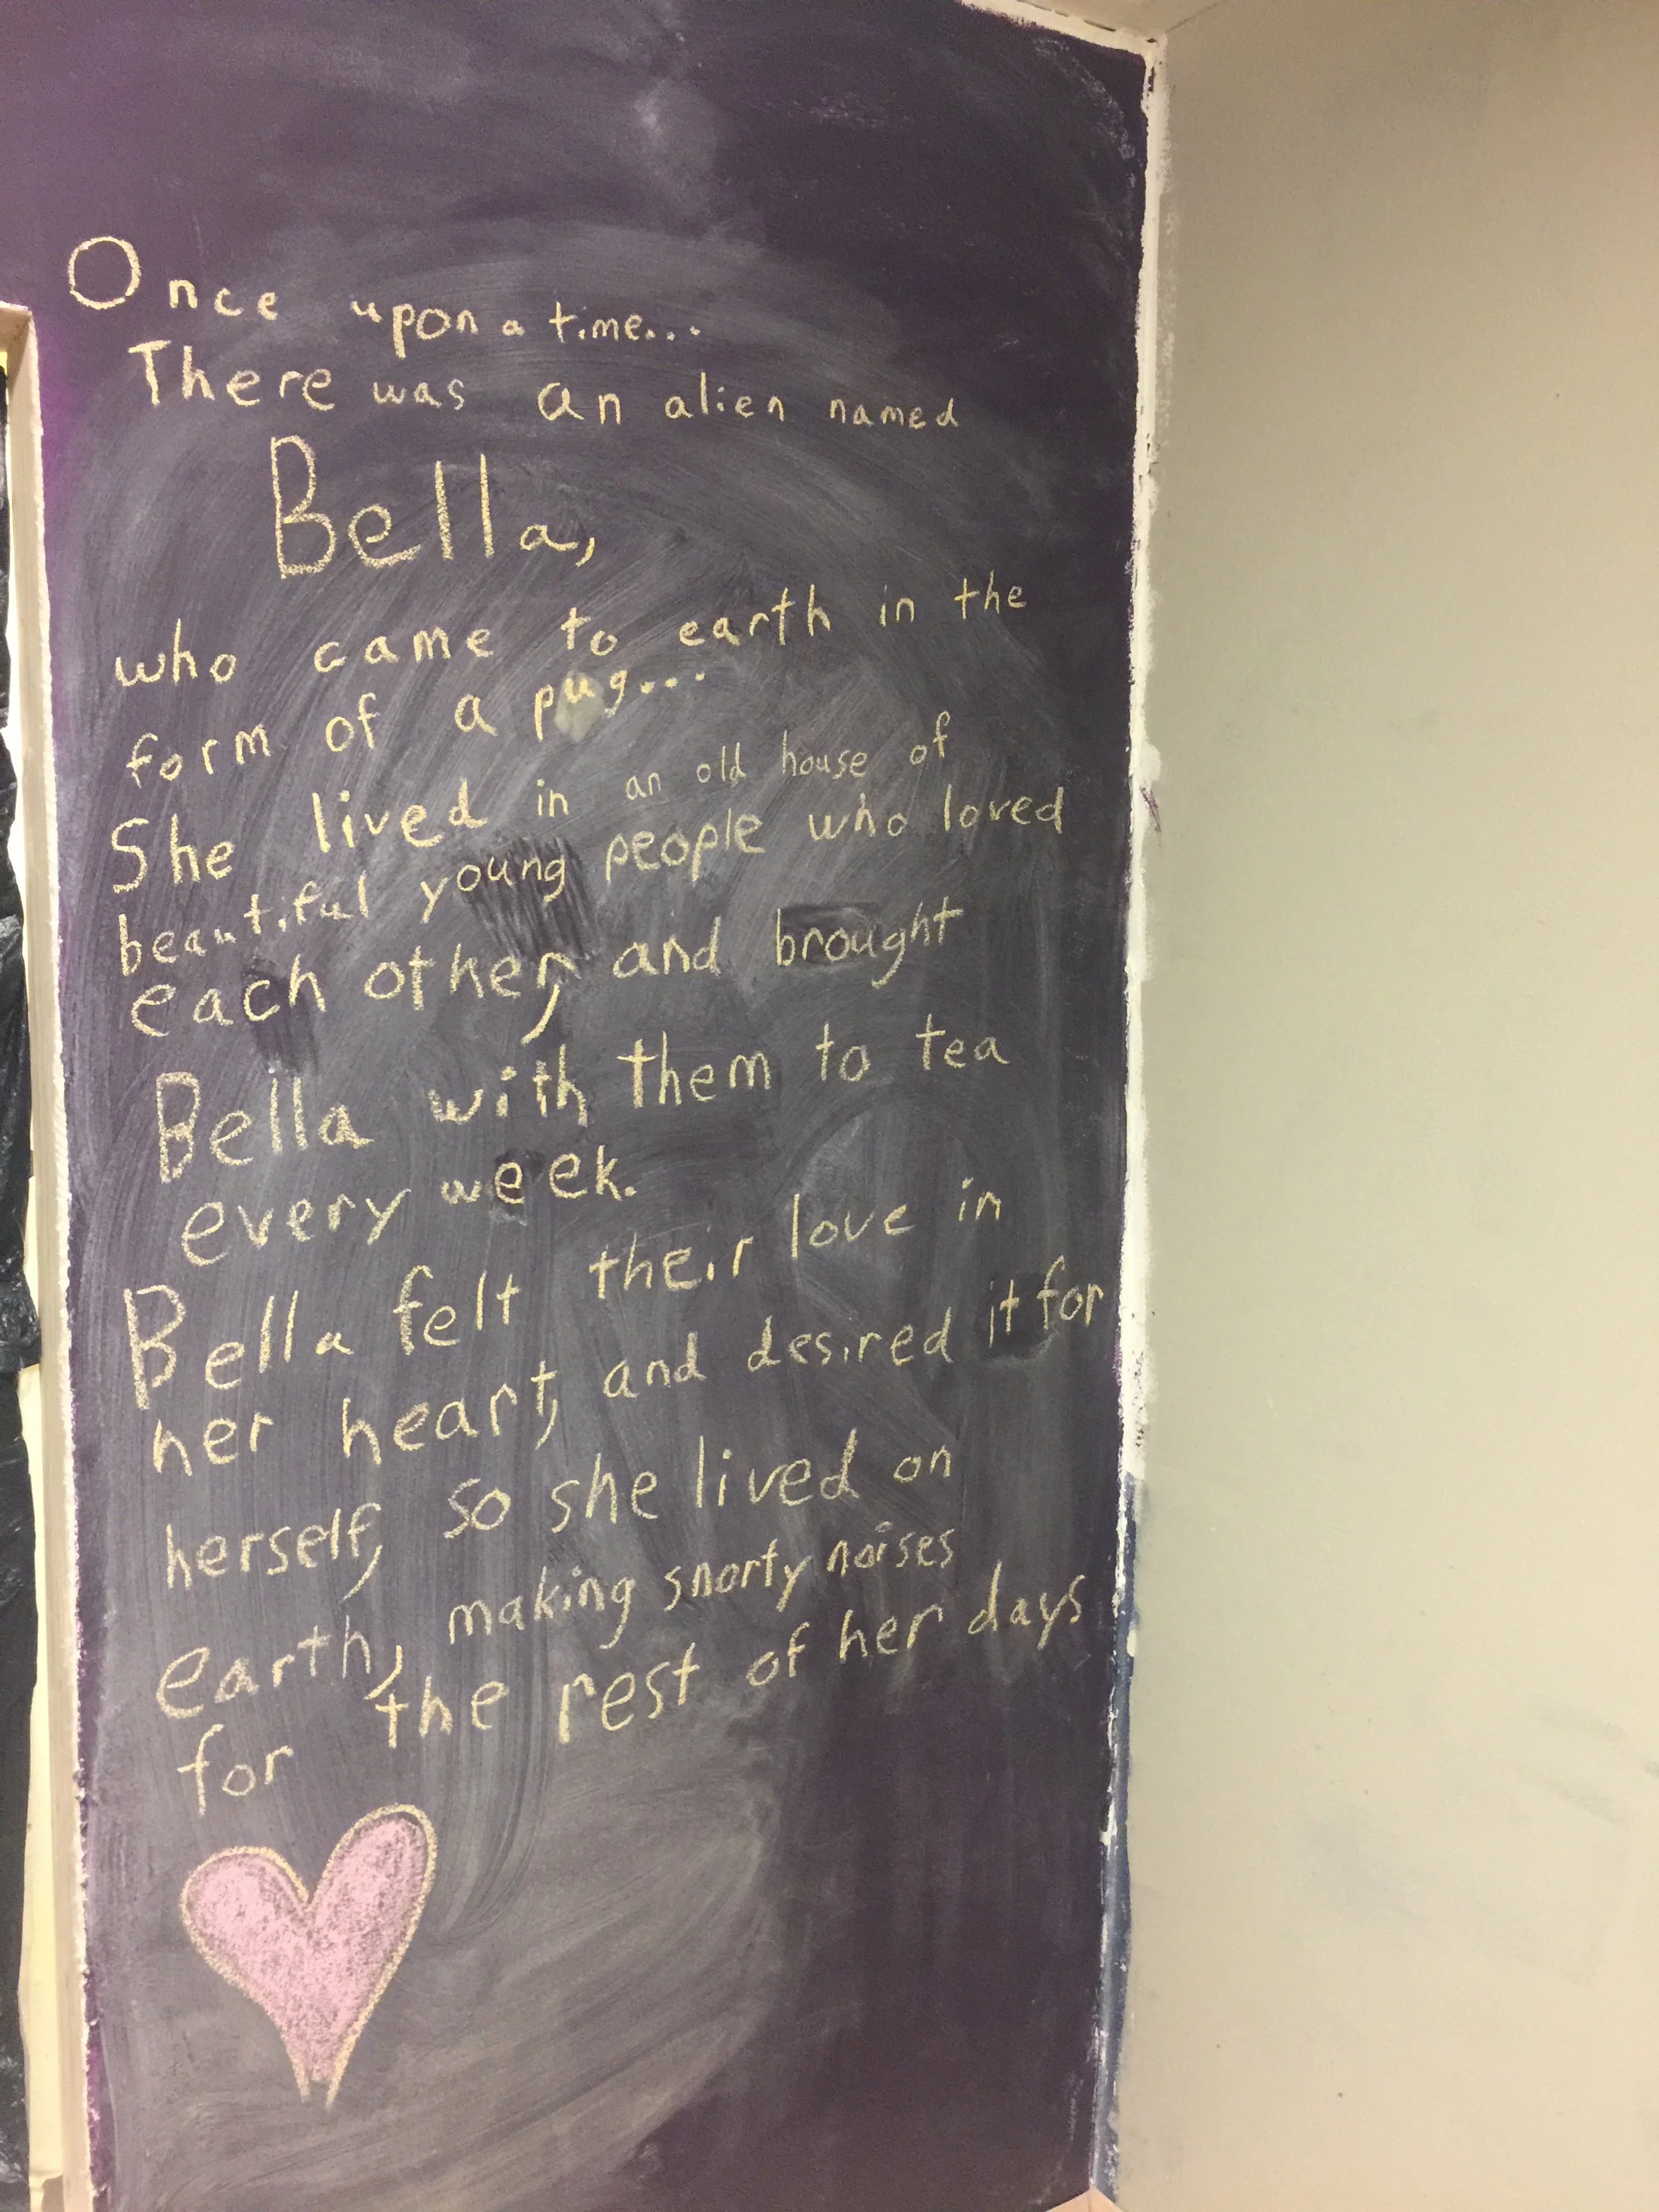 Once upon a time...
There was an alien named
Bella,
who came to earth in the
form of a pug...
She lived in an old house of
beautiful young people who loved
each other, and brought
Bella with them to tea
every week.
Bella felt their love in
her heart, and desired it for
herself, so she lived on
earth, making snorty noises
for the rest of her days